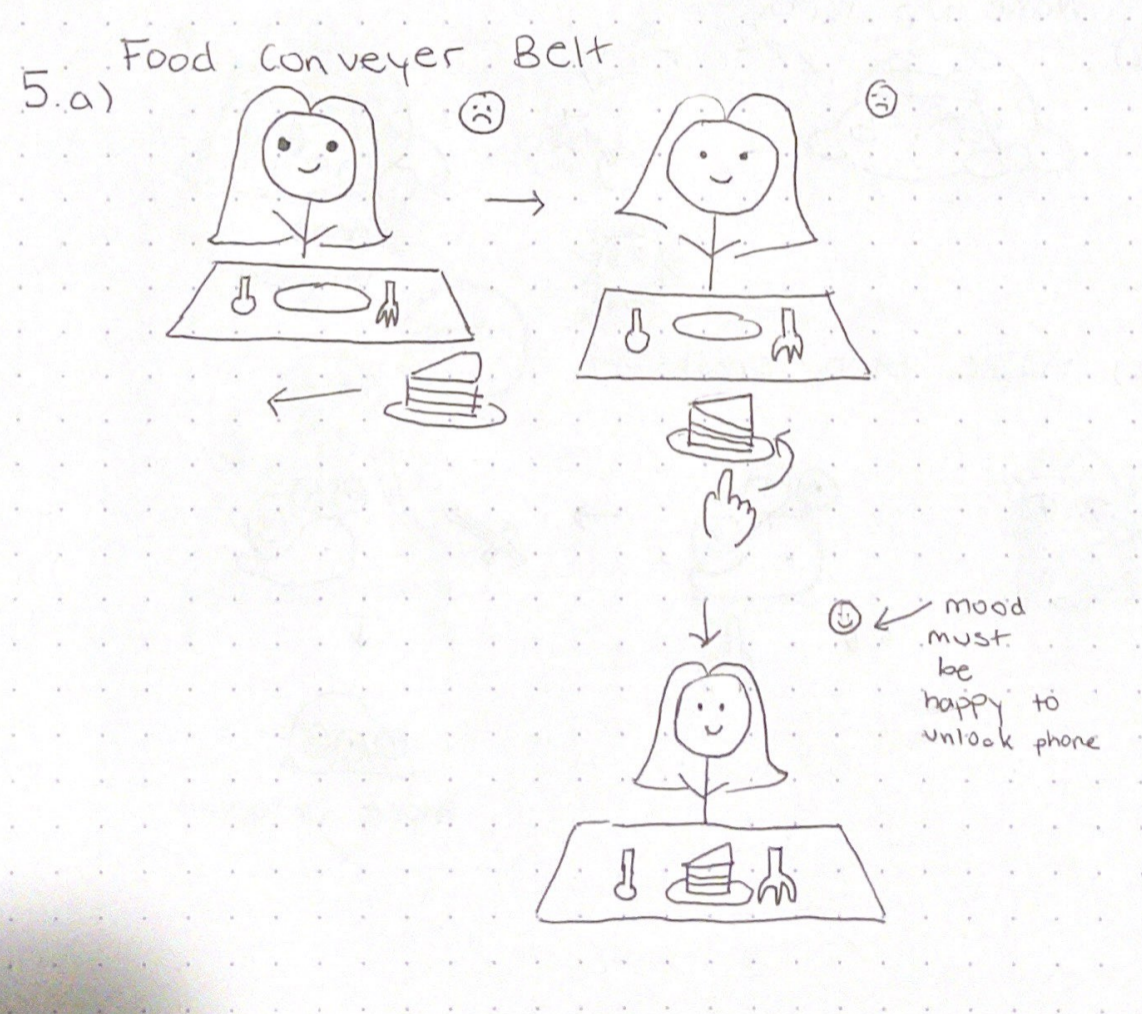 Food Conveyer Belt
5.a)
mood
must
be
happy to
unlock phone